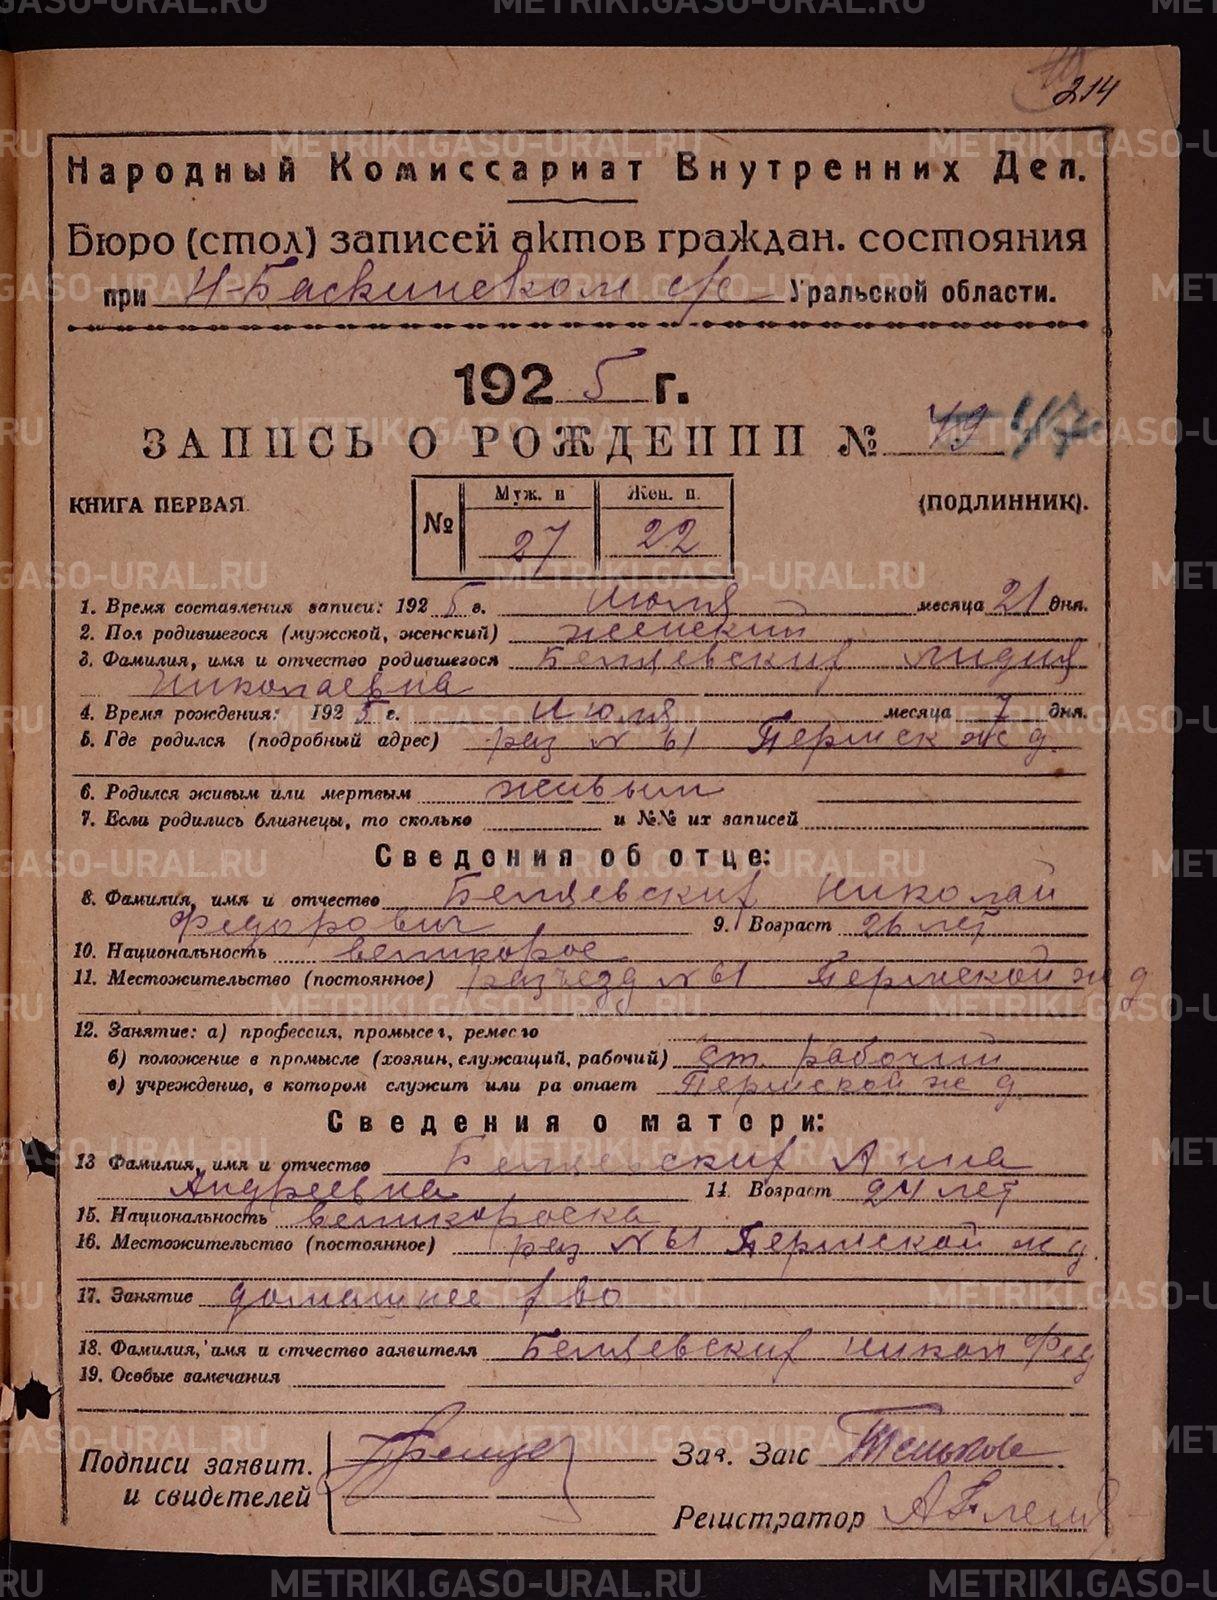 214
Народный Комиссариат Внутренних Дел.
Бюро (стол) записей актов граждан. состояния
при Н-Баскинском с/с Уральской области.
1925 г.
ЗАПИСЬ О РОЖДЕНИИ № 49
КНИГА ПЕРВАЯ (ПОДЛИННИК).
№ Муж. п Жен. п.
27 22
1. Время составления записи: 1925 г. Июля месяца 21 дня.
2. Пол родившегося (мужской, женский) женский
3. Фамилия, имя и отчество родившегося Лидия
Николаевна
4. Время рождения: 1925 г. Июля месяца 7 дня.
5. Где родился (подробный адрес) раз N 61 Пермск ж д.
6. Родился живым или мертвым живым
7. Если родились близнецы, то сколько и №№ их записей
Сведения об отце:
8. Фамилия, имя и отчество Николай
Федорович 9. Возраст 26 лет
10. Национальность великорос
11. Местожительство (постоянное) разъезд N 61 Пермской ж д
12. Занятие: а) профессия, промысел, ремесло
б) положение в промысле (хозяин, служащий, рабочий) ст. рабочий
в) учреждение, в котором служит или работает Пермской ж д.
Сведения о матери:
13 Фамилия, имя и отчество Анна
Андреевна 14. Возраст 24 лет
15. Национальность великороска
16. Местожительство (постоянное) раз N 61 Пермской ж д.
17. Занятие домашнее
18. Фамилия, имя и отчество заявителя Никол Фед
19. Особые замечания
Подписи заявит. Зав. Загс
и свидетелей
Регистратор
METRIKI.GASO-URAL.RU